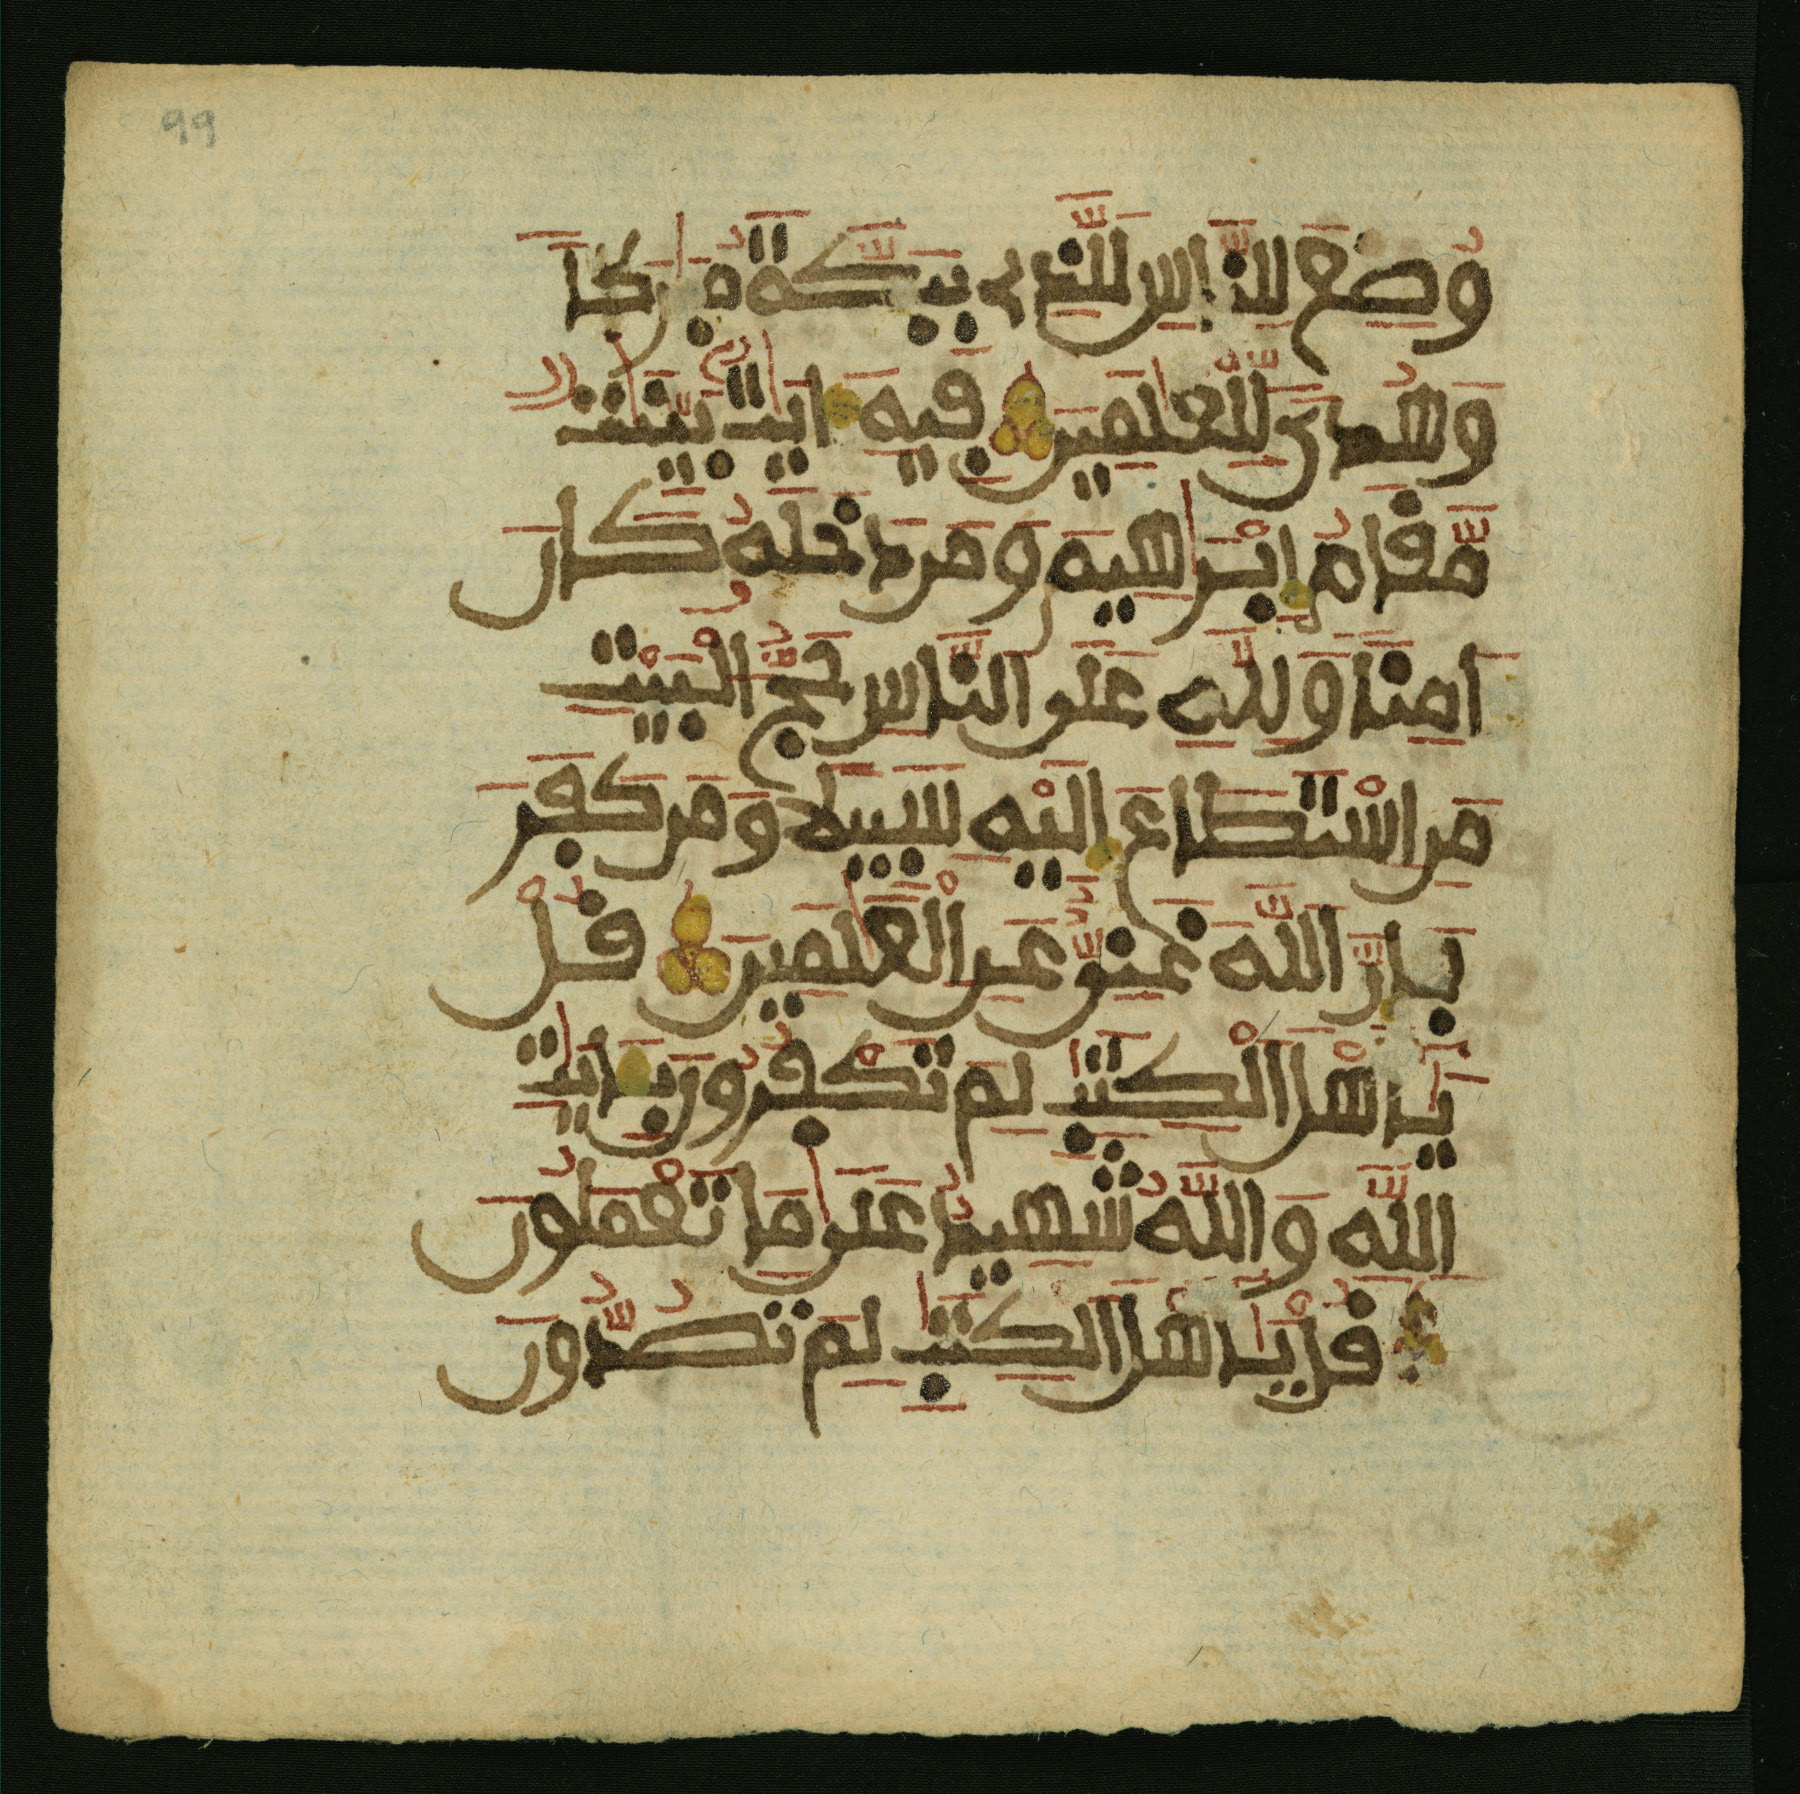 99
وُضِعَ لِلنَّاسِ لَلَّذِى بِبَكَّةَ مُبَٰرَكاً
وَهُدىً لِّلْعَٰلَمِينَ فِيهِ ءَايَٰتُۢ بَيِّنَٰتٌ
مَّقَامُ إِبْرَٰهِيمَ وَمَن دَخَلَهُۥ كَانَ
ءَامِناً وَلِلَّهِ عَلَى النَّاسِ حَجُّ الْبَيْتِ
مَنِ اسْتَطَاعَ إِلَيْهِ سَبِيلاً وَمَن كَفَرَ
فَإِنَّ اللَّهَ غَنِىٌّ عَنِ الْعَٰلَمِينَ قُلْ
يَٰأَهْلَ الْكِتَٰبِ لِمَ تَكْفُرُونَ بِـَٔايَٰتِ
اللَّهِ وَاللَّهُ شَهِيدٌ عَلَىٰ مَا تَعْمَلُونَ
قُلْ يَٰأَهْلَ الْكِتَٰبِ لِمَ تَصُدُّونَ